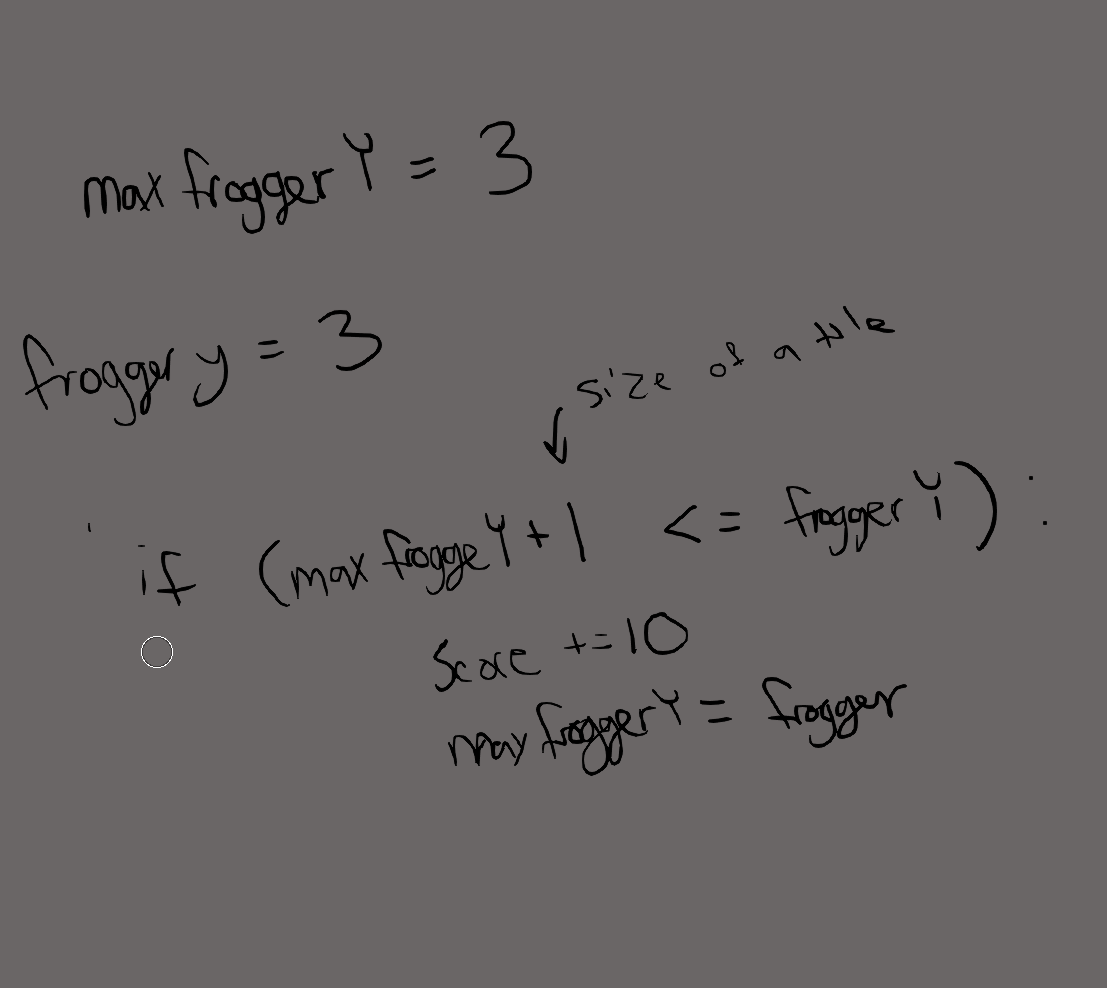 max froggerY = 3
frogger y = 3
size of a tile
if (max froggeY + 1 <= froggerY) :
Score += 10
max froggerY = frogger